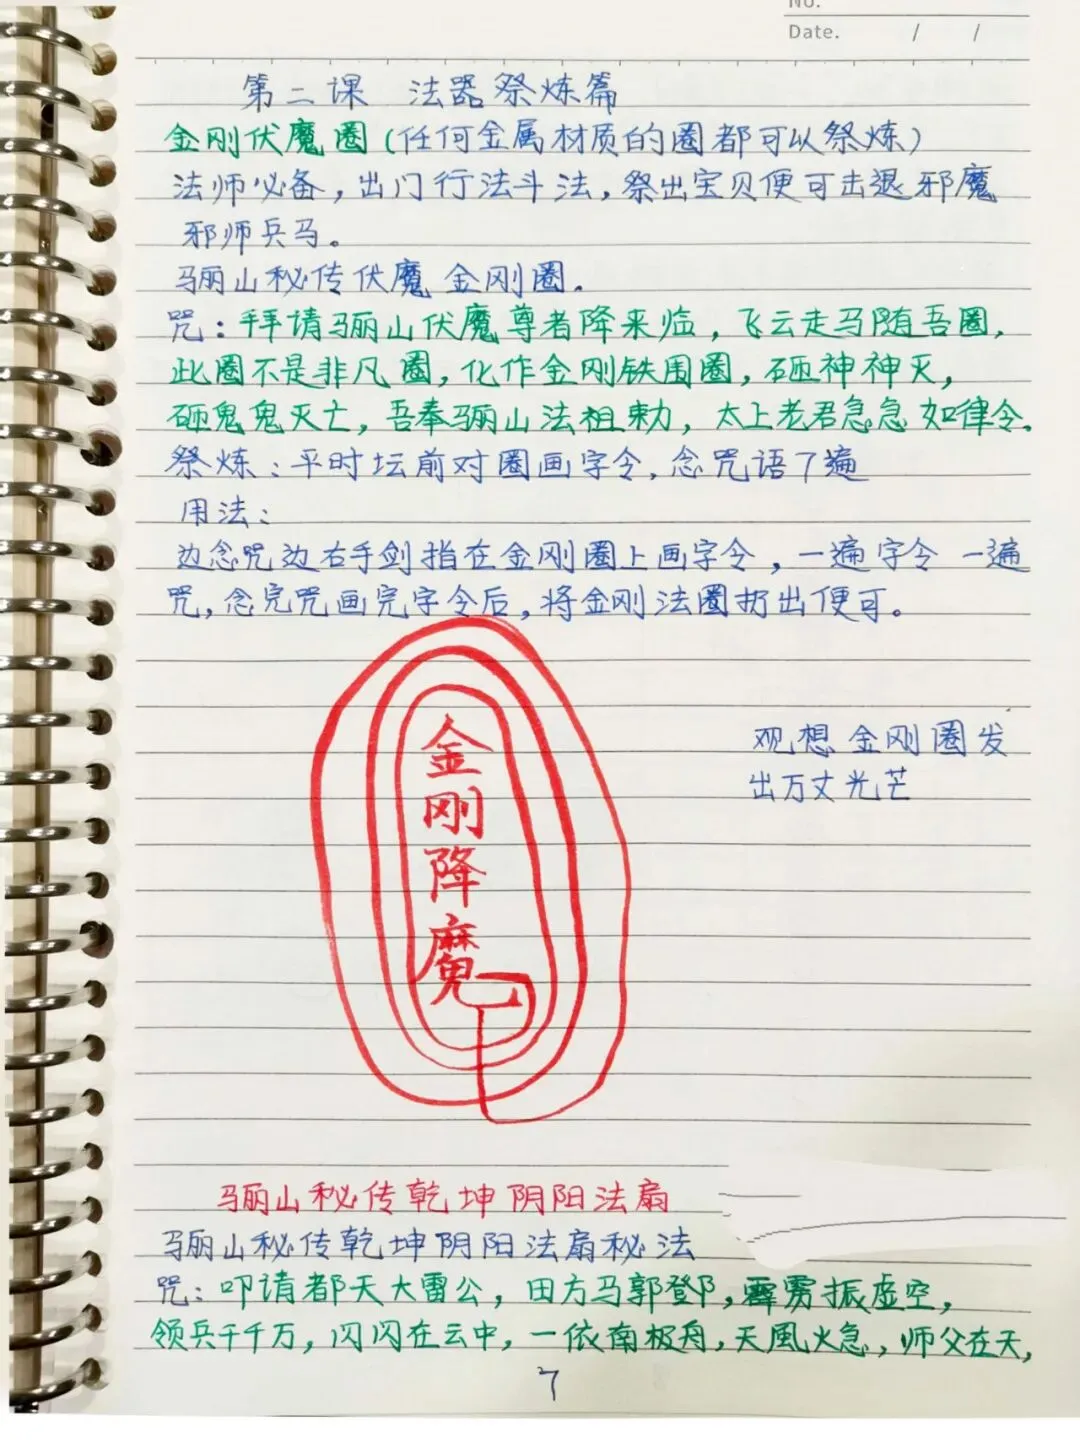 No.
Date. / /
第二课 法器祭炼篇
金刚伏魔圈(任何金属材质的圈都可以祭炼)
法师必备,出门行法斗法,祭出宝贝便可击退邪魔
邪师兵马。
骊山秘传伏魔金刚圈.
咒:拜请骊山伏魔尊者降来临,飞云走马随吾圈,
此圈不是非凡圈,化作金刚铁围圈,砸神神灭,
砸鬼鬼灭亡,吾奉骊山法祖敕,太上老君急急如律令.
祭炼:平时坛前对圈画字令,念咒语7遍
用法:
边念咒边右手剑指在金刚圈上画字令,一遍字令一遍
咒,念完咒画完字令后,将金刚法圈扔出便可。
金刚降魔
观想金刚圈发
出万丈光芒
骊山秘传乾坤阴阳法扇
骊山秘传乾坤阴阳法扇秘法
咒:叩请都天大雷公,田方马郭邓,霹雳振虚空,
领兵千千万,闪闪在云中,一依南极舟,天風火急,师父在天,
7